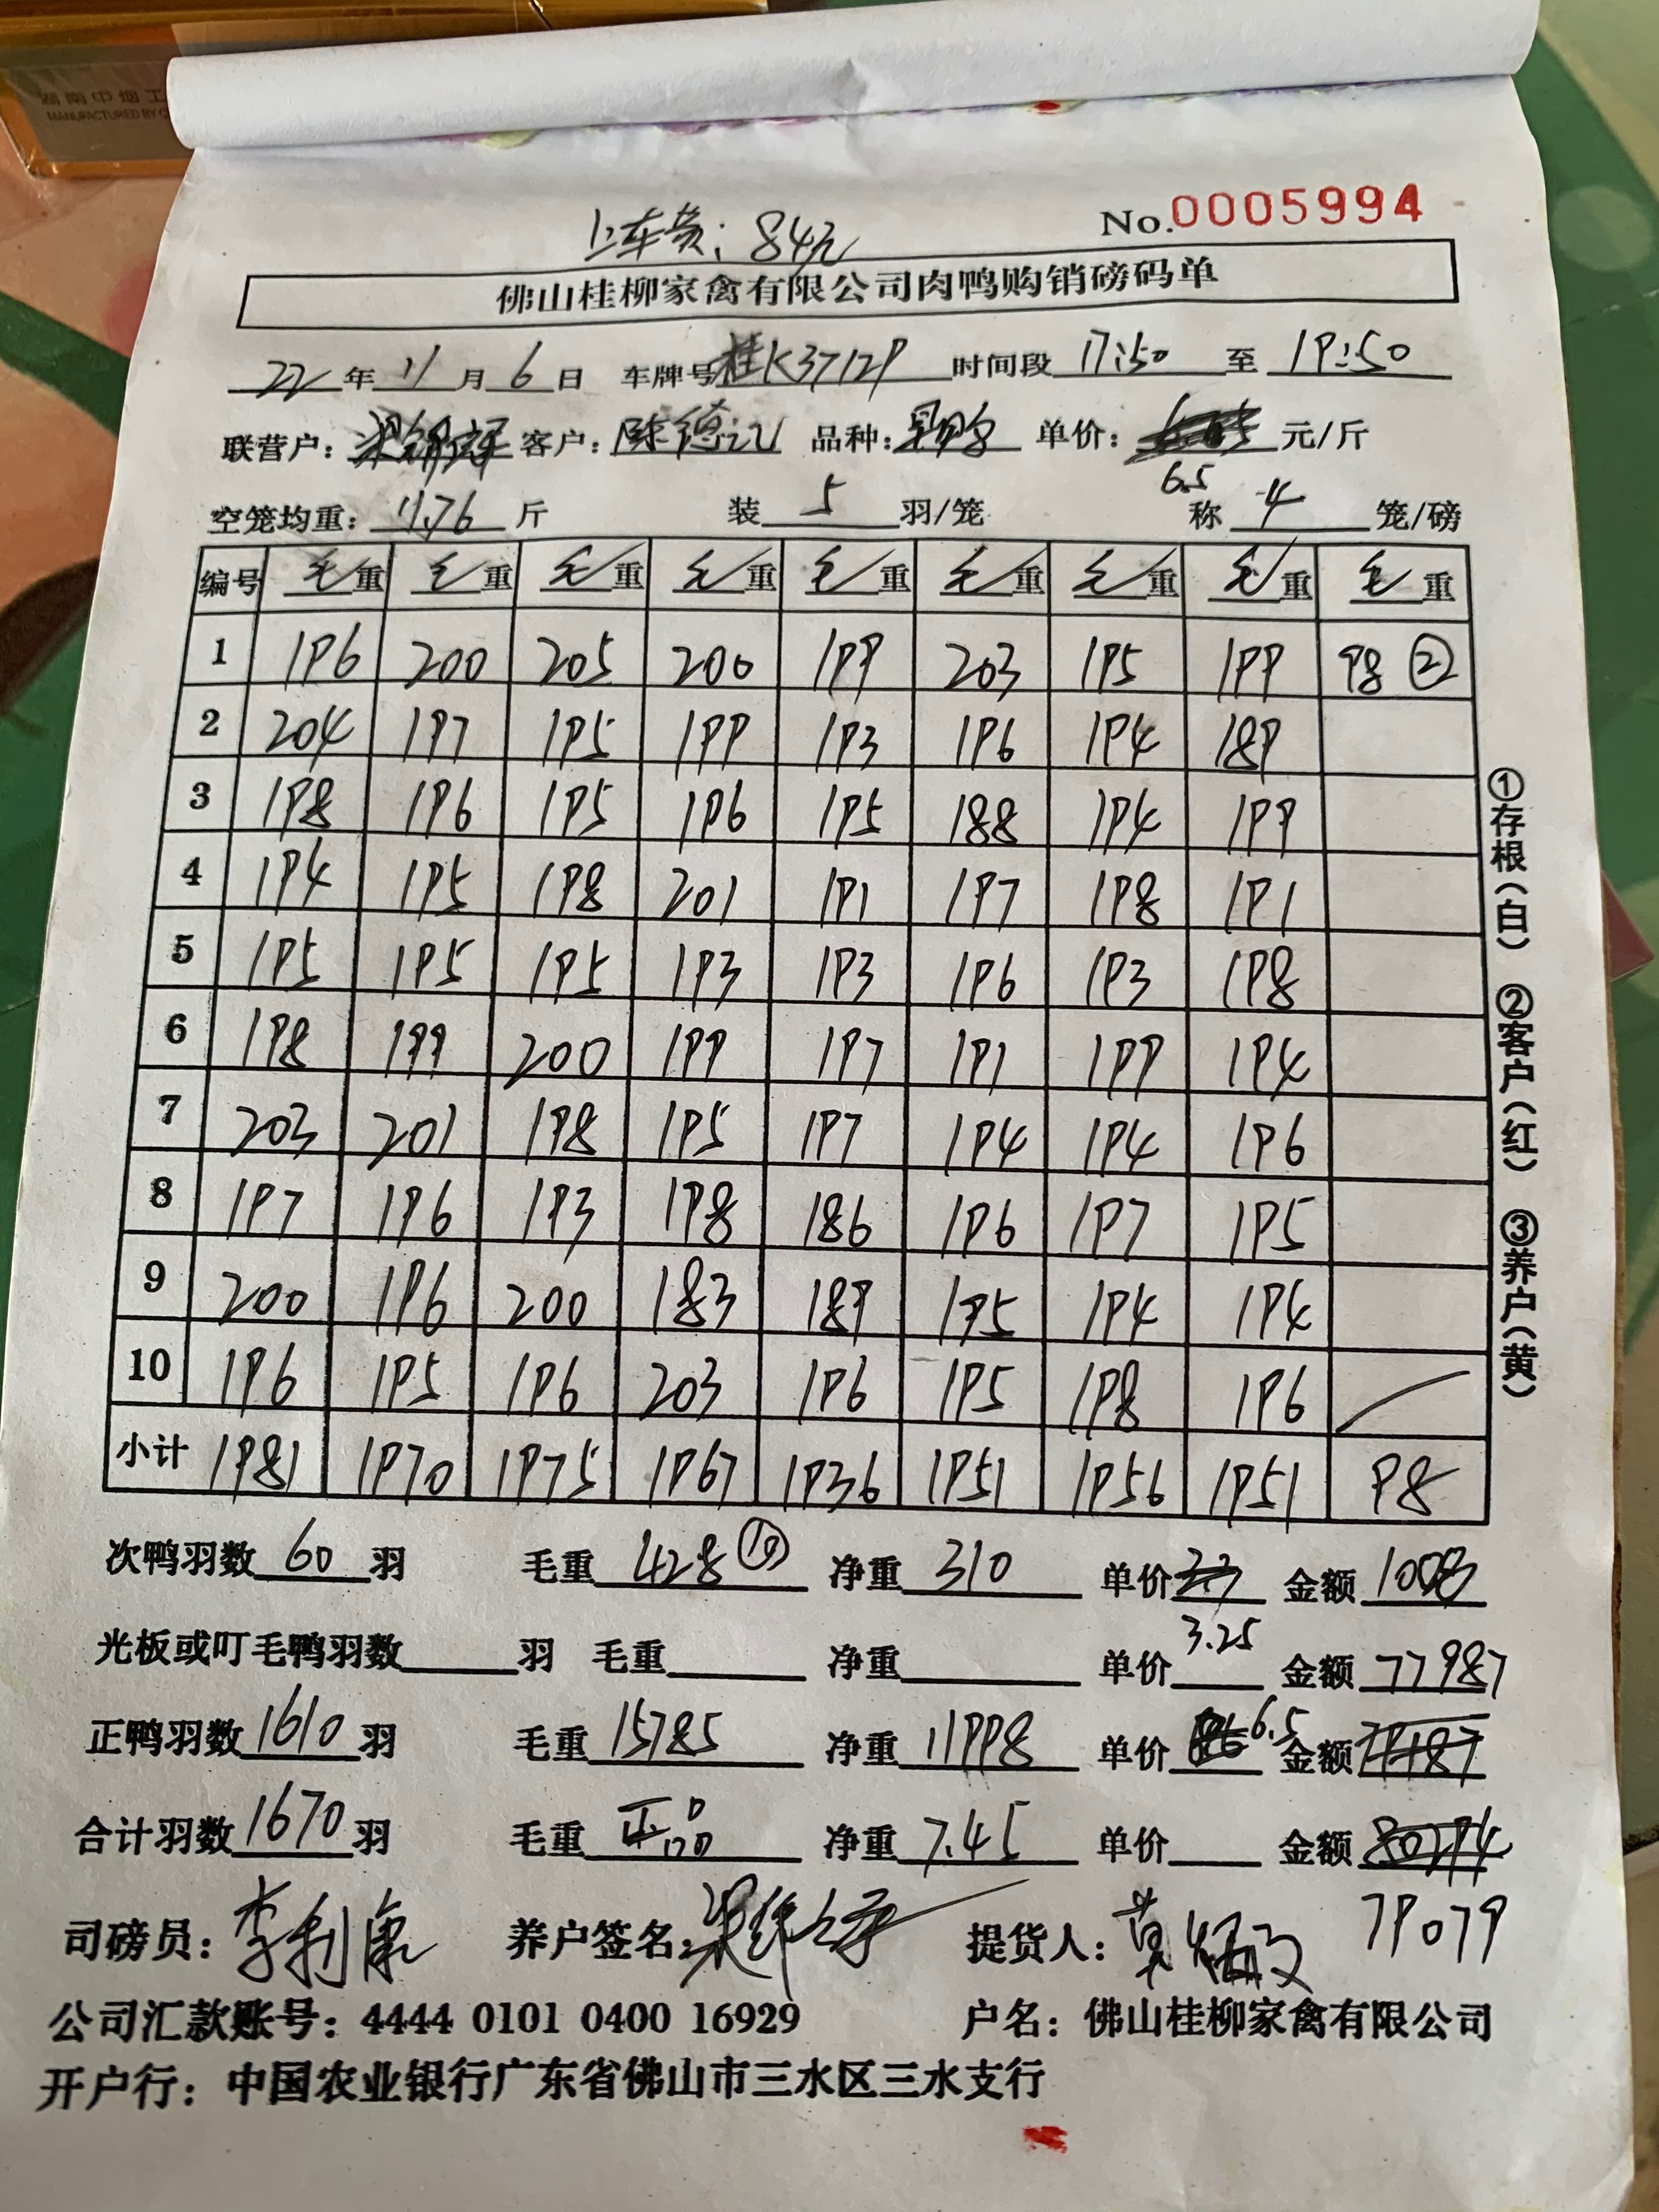 湖南中烟工
MANUFACTURED BY C
上车费：84元
No.0005994
佛山桂柳家禽有限公司肉鸭购销磅码单
22年11月6日 车牌号桂K37129 时间段17:50至19:50
联营户： 客户：陈德记 品种： 单价： 元/斤
6.5
空笼均重：11.76斤 装5羽/笼 称4笼/磅
编号 毛重 毛重 毛重 毛重 毛重 毛重 毛重 毛重 毛重
1 196 200 205 200 199 203 195 199 98 ②
2 204 197 195 199 193 196 194 189
3 198 196 195 196 195 188 194 199
4 194 195 198 201 191 197 198 191
5 195 195 195 193 193 196 193 198
6 198 199 200 199 197 191 199 194
7 203 201 198 195 197 194 194 196
8 197 196 193 198 186 196 197 195
9 200 196 200 183 189 195 194 194
10 196 195 196 203 196 195 198 196
小计 1981 1970 1975 1967 1936 1951 1956 1951 98
①存根（白） ②客户（红） ③养户（黄）
次鸭羽数60羽 毛重428⑩ 净重310 单价 金额1008
3.25
光板或叮毛鸭羽数 羽 毛重 净重 单价 金额77987
正鸭羽数1610羽 毛重15785 净重11998 单价6.5 金额
合计羽数1670羽 毛重正品 净重7.45 单价 金额
79079
司磅员：李利康 养户签名： 提货人：
公司汇款账号：4444 0101 0400 16929 户名：佛山桂柳家禽有限公司
开户行：中国农业银行广东省佛山市三水区三水支行